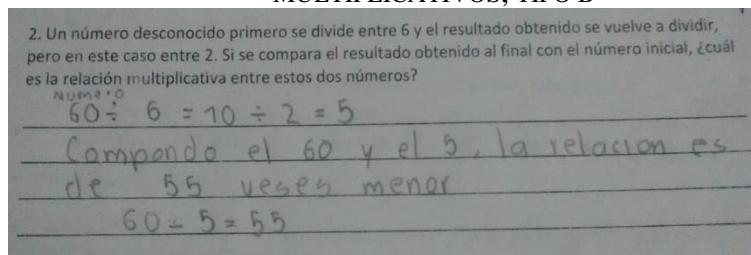 MULTIPLICATIVOS, TIPO B
2. Un número desconocido primero se divide entre 6 y el resultado obtenido se vuelve a dividir,
pero en este caso entre 2. Si se compara el resultado obtenido al final con el número inicial, ¿cuál
es la relación multiplicativa entre estos dos números?
Numero
60 ÷ 6 = 10 ÷ 2 = 5
Compondo el 60 y el 5, la relacion es
de 55 veses menor
60 - 5 = 55